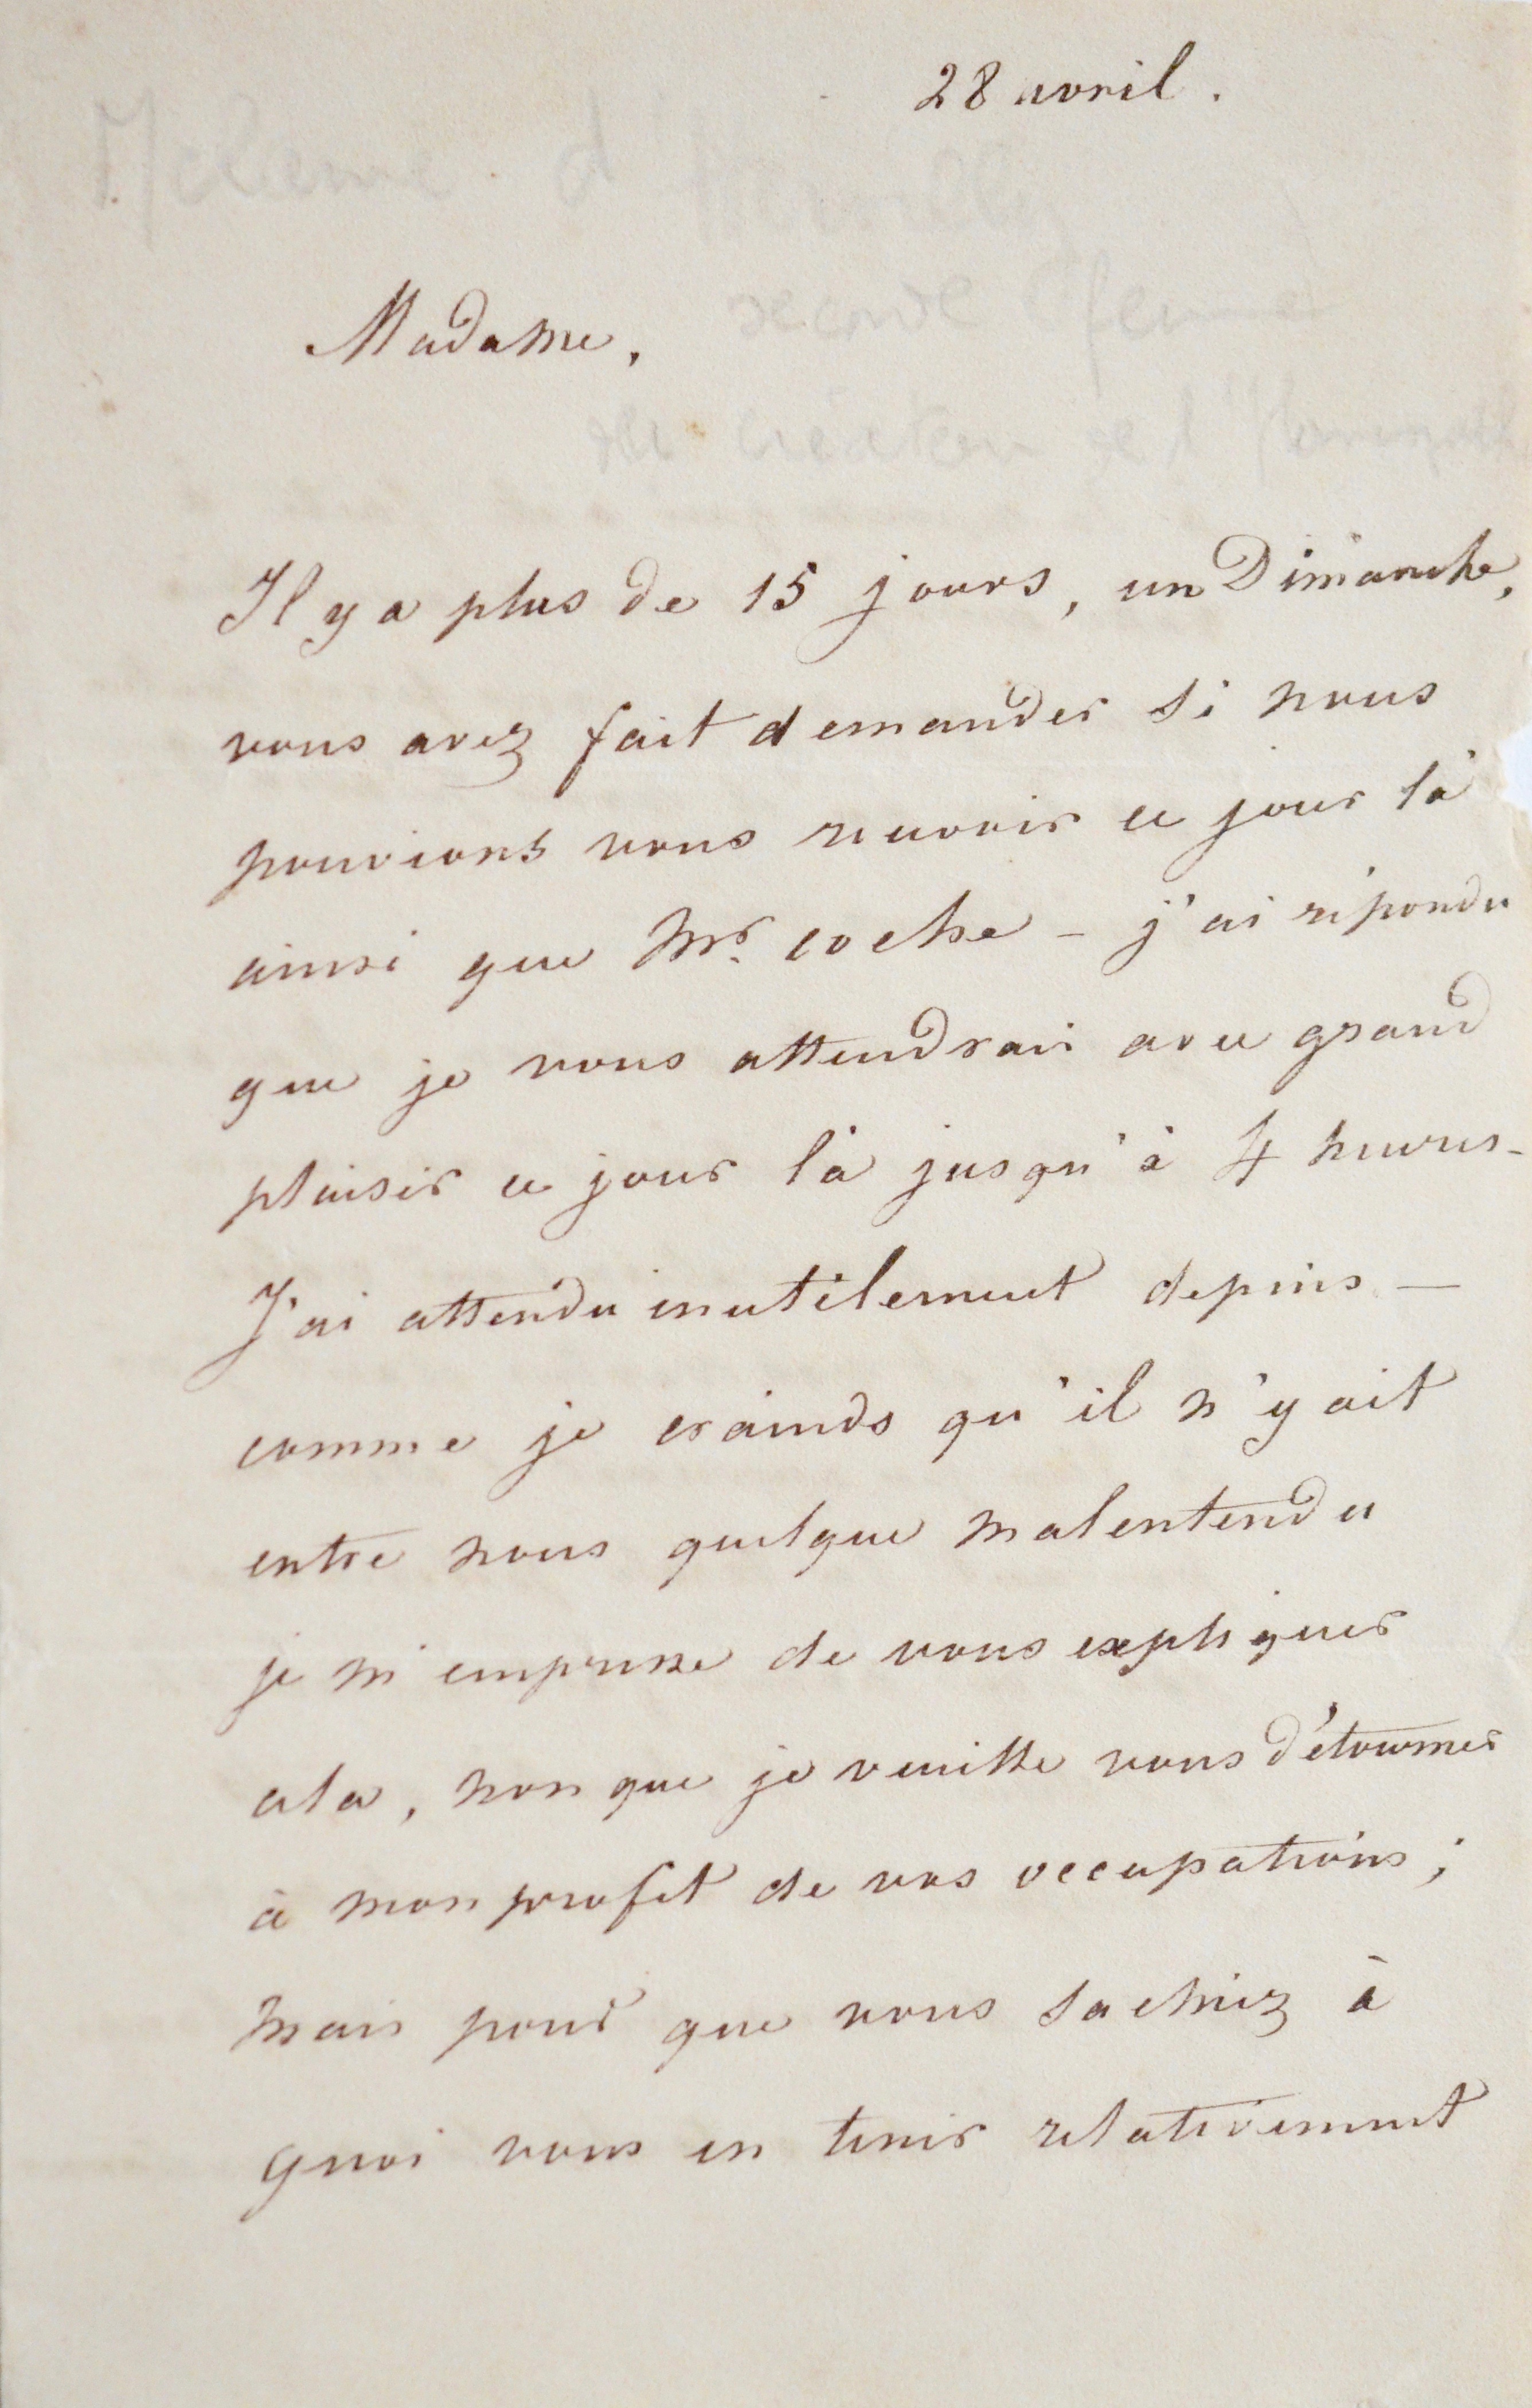 28 avril.
Madame,
seconde femme
Il y a plus de 15 jours, un Dimanche,
vous avez fait demander si nous
pouvions vous recevoir ce jour là
ainsi que Mr. coche - j'ai répondu
que je vous attendrais avec grand
plaisir ce jour là jusqu'à 4 heures -
J'ai attendu inutilement depuis —
comme je crainds qu'il n'y ait
entre nous quelque malentendu
je m'empresse de vous expliquer
cela, non que je veuille vous détourner
à mon profit de vos occupations ;
mais pour que vous sachiez à
quoi vous en tenir relativement